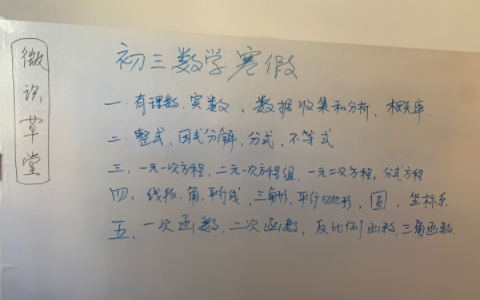 微识草堂
初三数学寒假
一.有理数.实数、数据收集和分析.概率.
二.整式,因式分解,分式,不等式
三.一元一次方程,二元一次方程组,一元二次方程,分式方程
四.线段.角.平行线,三角形,平行四边形,圆,坐标系
五.一次函数.二次函数,反比例函数,三角函数.